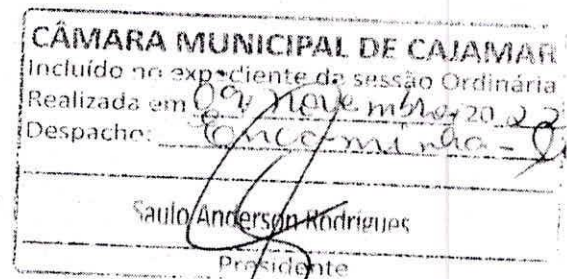 CÂMARA MUNICIPAL DE CAJAMAR
Incluído no expediente da sessão Ordinária
Realizada em 09 novembro 20 22
Despacho: Encaminha-
Saulo Anderson Rodrigues
Presidente